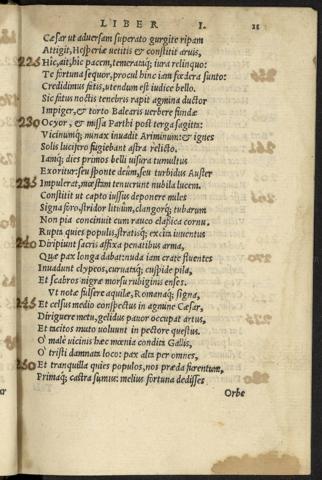 LIBER I. 21
Cæsar ut aduersam superato gurgite ripam
Attigit, Hesperiæ uetitis & constitit aruis,
225 Hic, ait, hic pacem, temerataq́; iura relinquo:
Te fortuna sequor, procul hinc iam fœdera sunto:
Credidimus fatis, utendum est iudice bello.
Sic fatus noctis tenebris rapit agmina ductor
Impiger, & torto Balearis uerbere fundæ
230 Ocyor, & missa Parthi post terga sagitta:
Vicinumq́; minax inuadit Ariminum: & ignes
Solis lucifero fugiebant astra relicto.
Iamq́; dies primos belli uisura tumultus
Exoritur: seu sponte deûm, seu turbidus Auster
235 Impulerat, mœstam tenuerunt nubila lucem.
Constitit ut capto iussus deponere miles
Signa foro, stridor lituûm, clangorq́; tubarum
Non pia concinuit cum rauco classica cornu.
Rupta quies populis, stratisq́; excita iuuentus
240 Diripiunt sacris affixa penatibus arma,
Quæ pax longa dabat: nuda iam crate fluentes
Inuadunt clypeos, curuataq́; cuspide pila,
Et scabros nigræ morsu rubiginis enses.
Vt notæ fulsere aquilæ, Romanaq́; signa,
245 Et celsus medio conspectus in agmine Cæsar,
Diriguere metu, gelidus pauor occupat artus,
Et tacitos muto uoluunt in pectore questus.
O' male uicinis hæc mœnia condita Gallis,
O' tristi damnata loco: pax alta per omnes,
250 Et tranquilla quies populos, nos præda furentum,
Primaq́; castra sumus: melius fortuna dedisses
Orbe